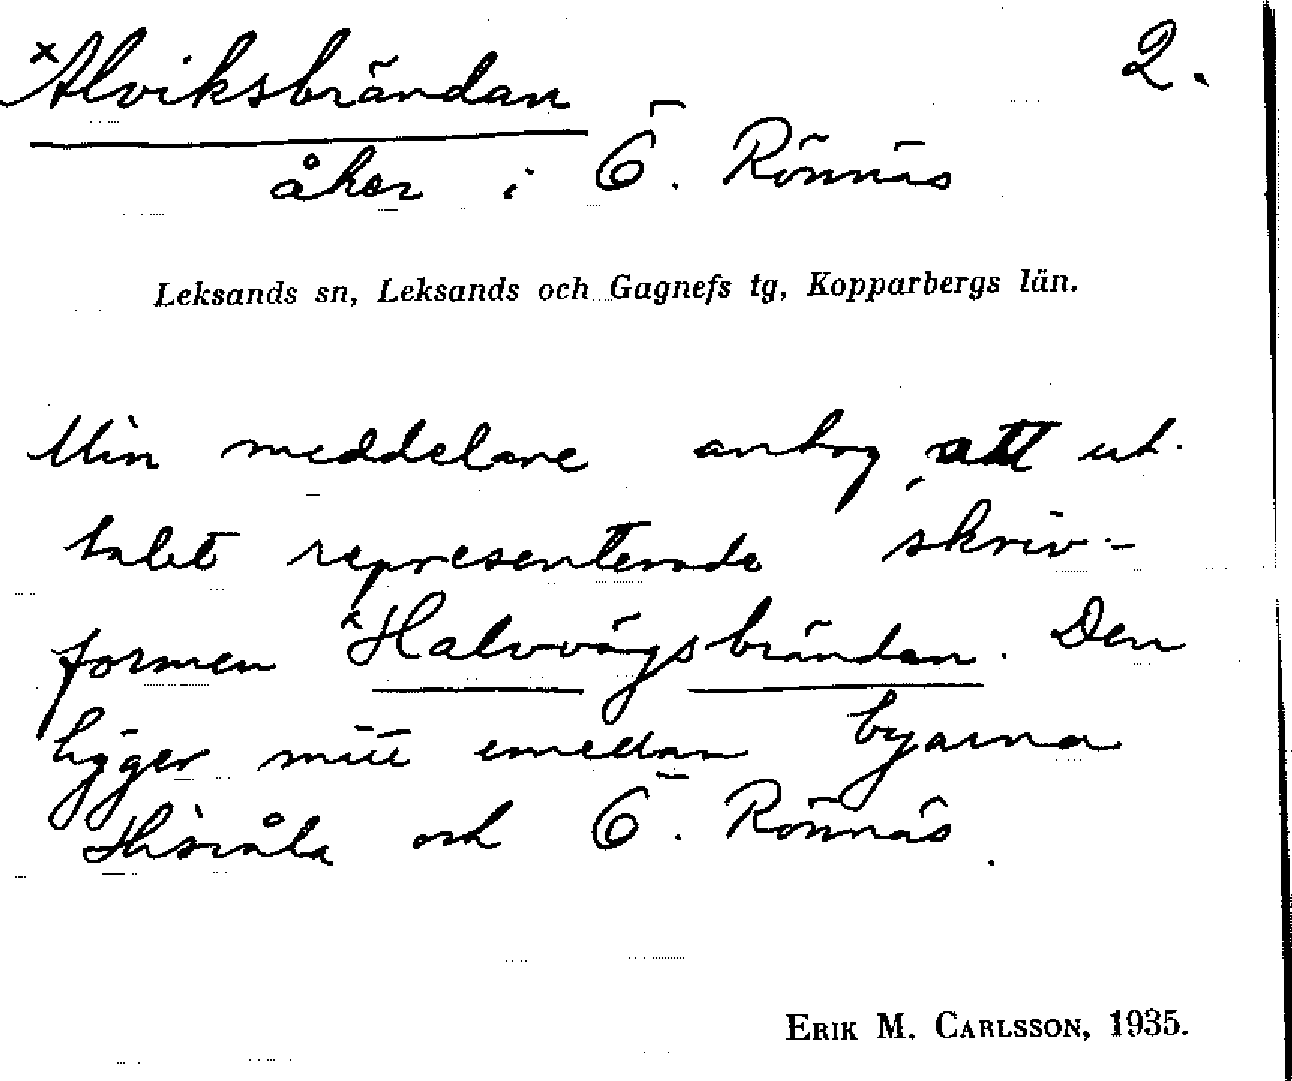 ×Alviksbrändan 2.
åker i Ö. Rönnäs
Leksands sn, Leksands och Gagnefs tg, Kopparbergs län.
Min meddelare antog, att ut-
talet representerade skriv-
formen ×Halvvägsbrändan. Den
ligger mitt emellan byarna
Hisvåla och Ö. Rönnäs.
ERIK M. CARLSSON, 1935.